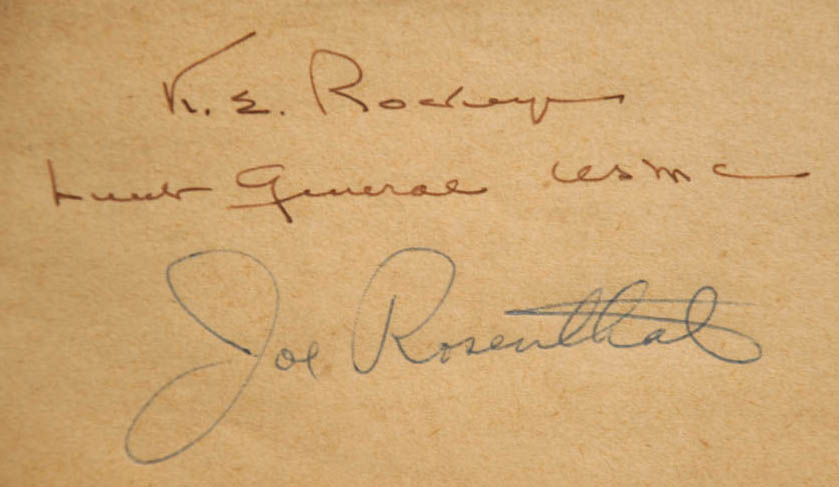 K. E. Rockey
Lieut General USMC
Joe Rosenthal